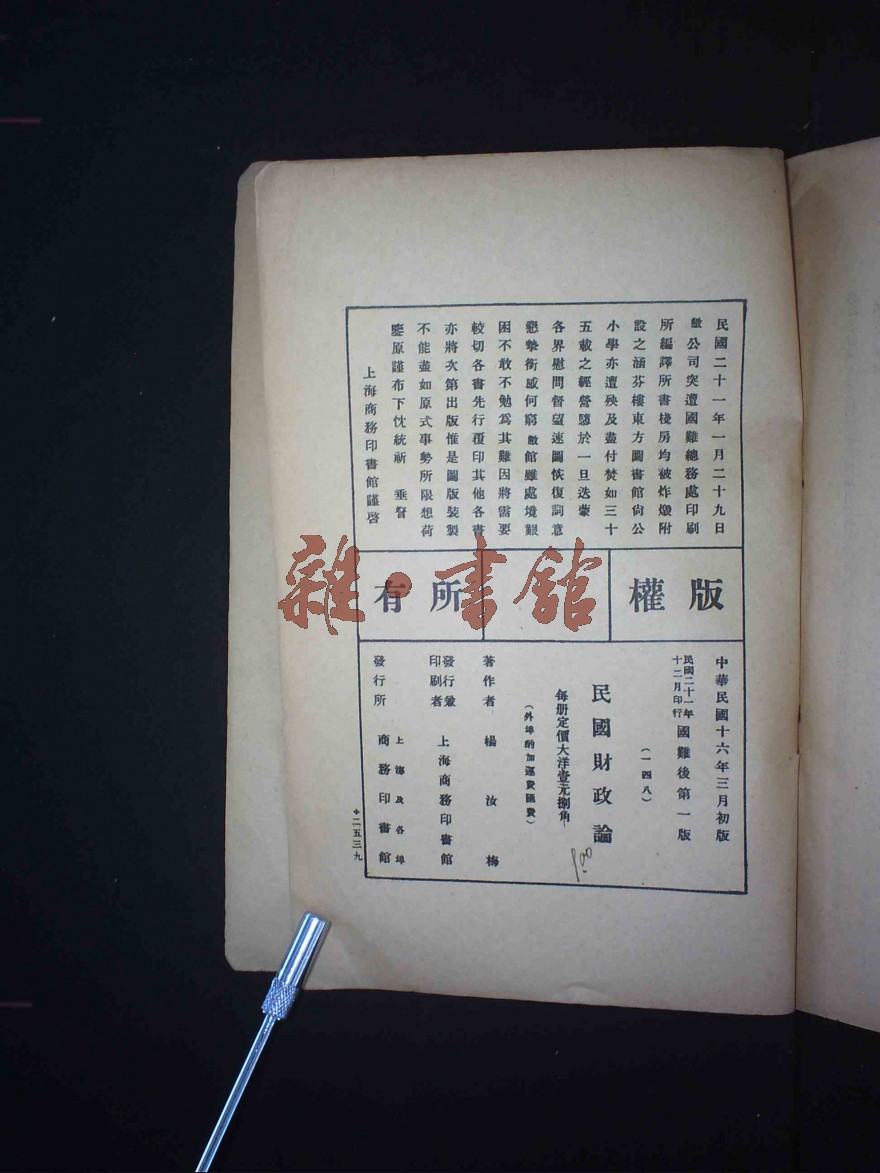 民國二十一年一月二十九日
敝公司突遭國難總務處印刷
所編譯所書棧房均被炸燬附
設之涵芬樓東方圖書館尙公
小學亦遭殃及盡付焚如三十
五載之經營隳於一旦迭蒙
各界慰問督望速圖恢復詞意
懇摯銜感何窮敝館雖處境艱
困不敢不勉爲其難因將需要
較切各書先行覆印其他各書
亦將次第出版惟是圖版裝製
不能盡如原式事勢所限想荷
鑒原謹布下忱統祈 垂詧
上海商務印書館謹啓
版權所有
中華民國十六年三月初版
民國二十一年十二月印行 國難後第一版
(一四八)
民國財政論
每册定價大洋壹元捌角
(外埠酌加運費匯費)
著作者 楊汝梅
發行兼印刷者 上海商務印書館
發行所 上海及各埠 商務印書館
二五三九
雜·書館